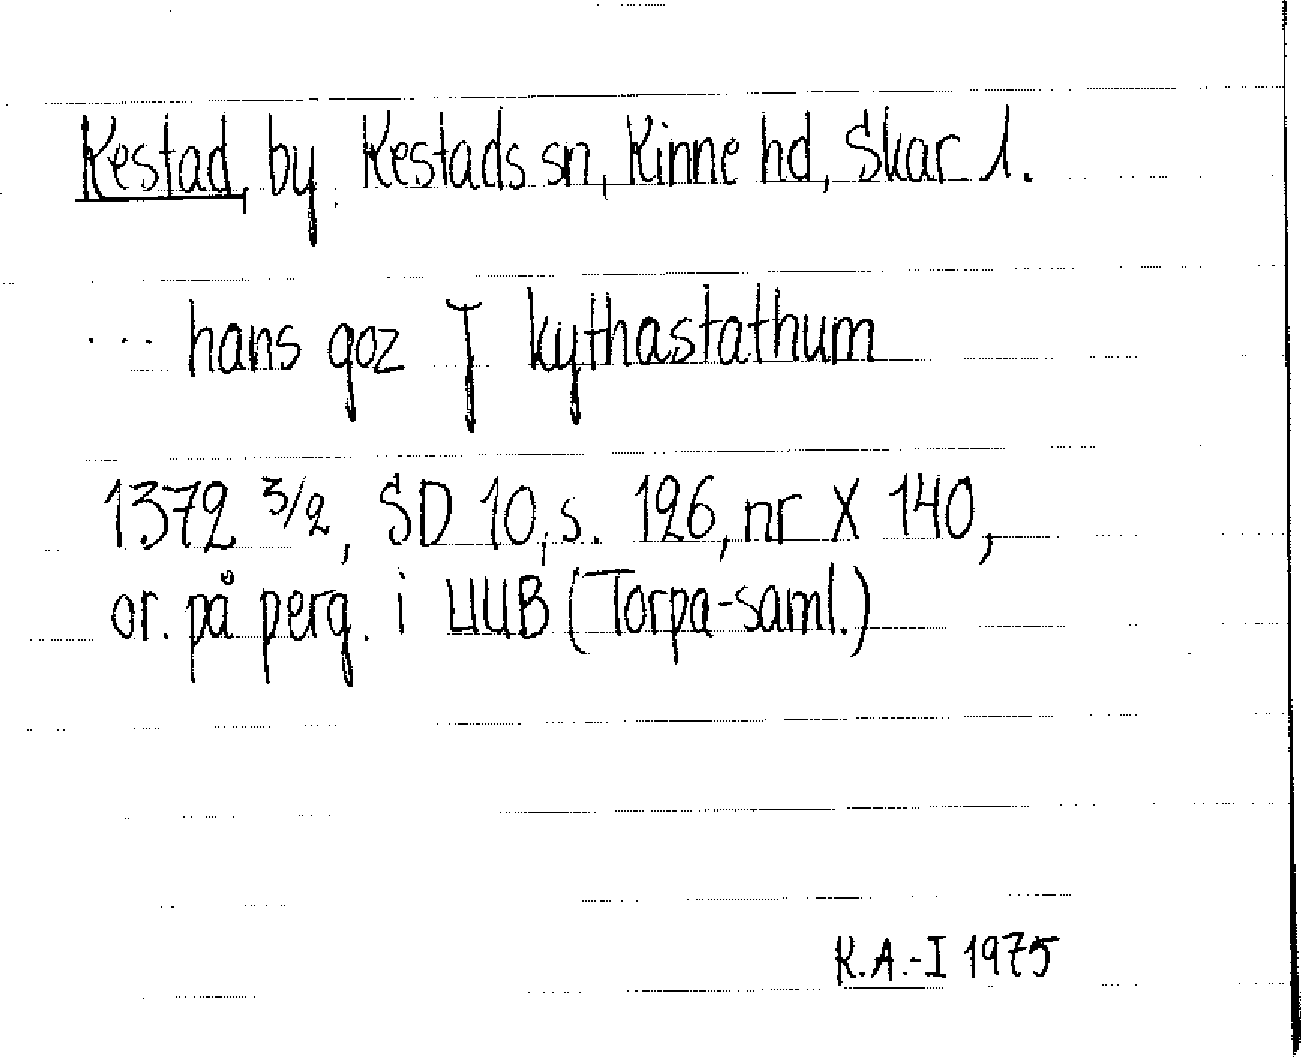 Kestad, by. Kestads sn, Kinne hd, Skar l.
... hans goz J kythastathum
1372 3/2, SD 10, s. 126, nr X 140,
or. på perg. i UUB (Torpa-saml.)
K.A.-I 1975